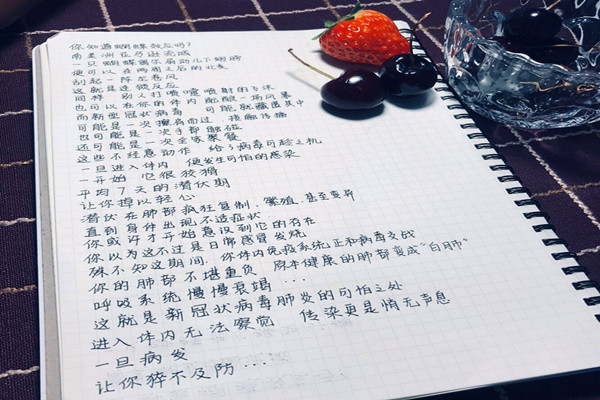 你知道蝴蝶效应吗?
南美洲亚马逊流域
一只蝴蝶偶尔扇动几下翅膀
便可以在两周之后的北美
刮起一阵龙卷风
这就是连锁反应
同样 别人打喷嚏喷射的飞沫
也可以在你的体内酝酿一场风暴
而新型冠状病毒 可能就藏匿其中
可能是一次擦肩而过 接触传播
也可能是一次手部触碰
还可能是一次全家聚餐
这些不经意动作 给了病毒可趁之机
一旦进入体内 便发生可怕的感染
一开始 它很狡猾
平均7天的潜伏期
让你掉以轻心
潜伏在肺部疯狂复制、繁殖、甚至变异
直到身体出现不适症状
你或许才开始意识到它的存在
你以为这不过是日常感冒发烧
殊不知这期间 你体内免疫系统正和病毒交战
你的肺部不堪重负 原本健康的肺部变成“白肺”
呼吸系统慢慢衰竭...
这就是新冠状病毒肺炎的可怕之处
进入体内无法察觉 传染更是悄无声息
一旦病发
让你猝不及防....